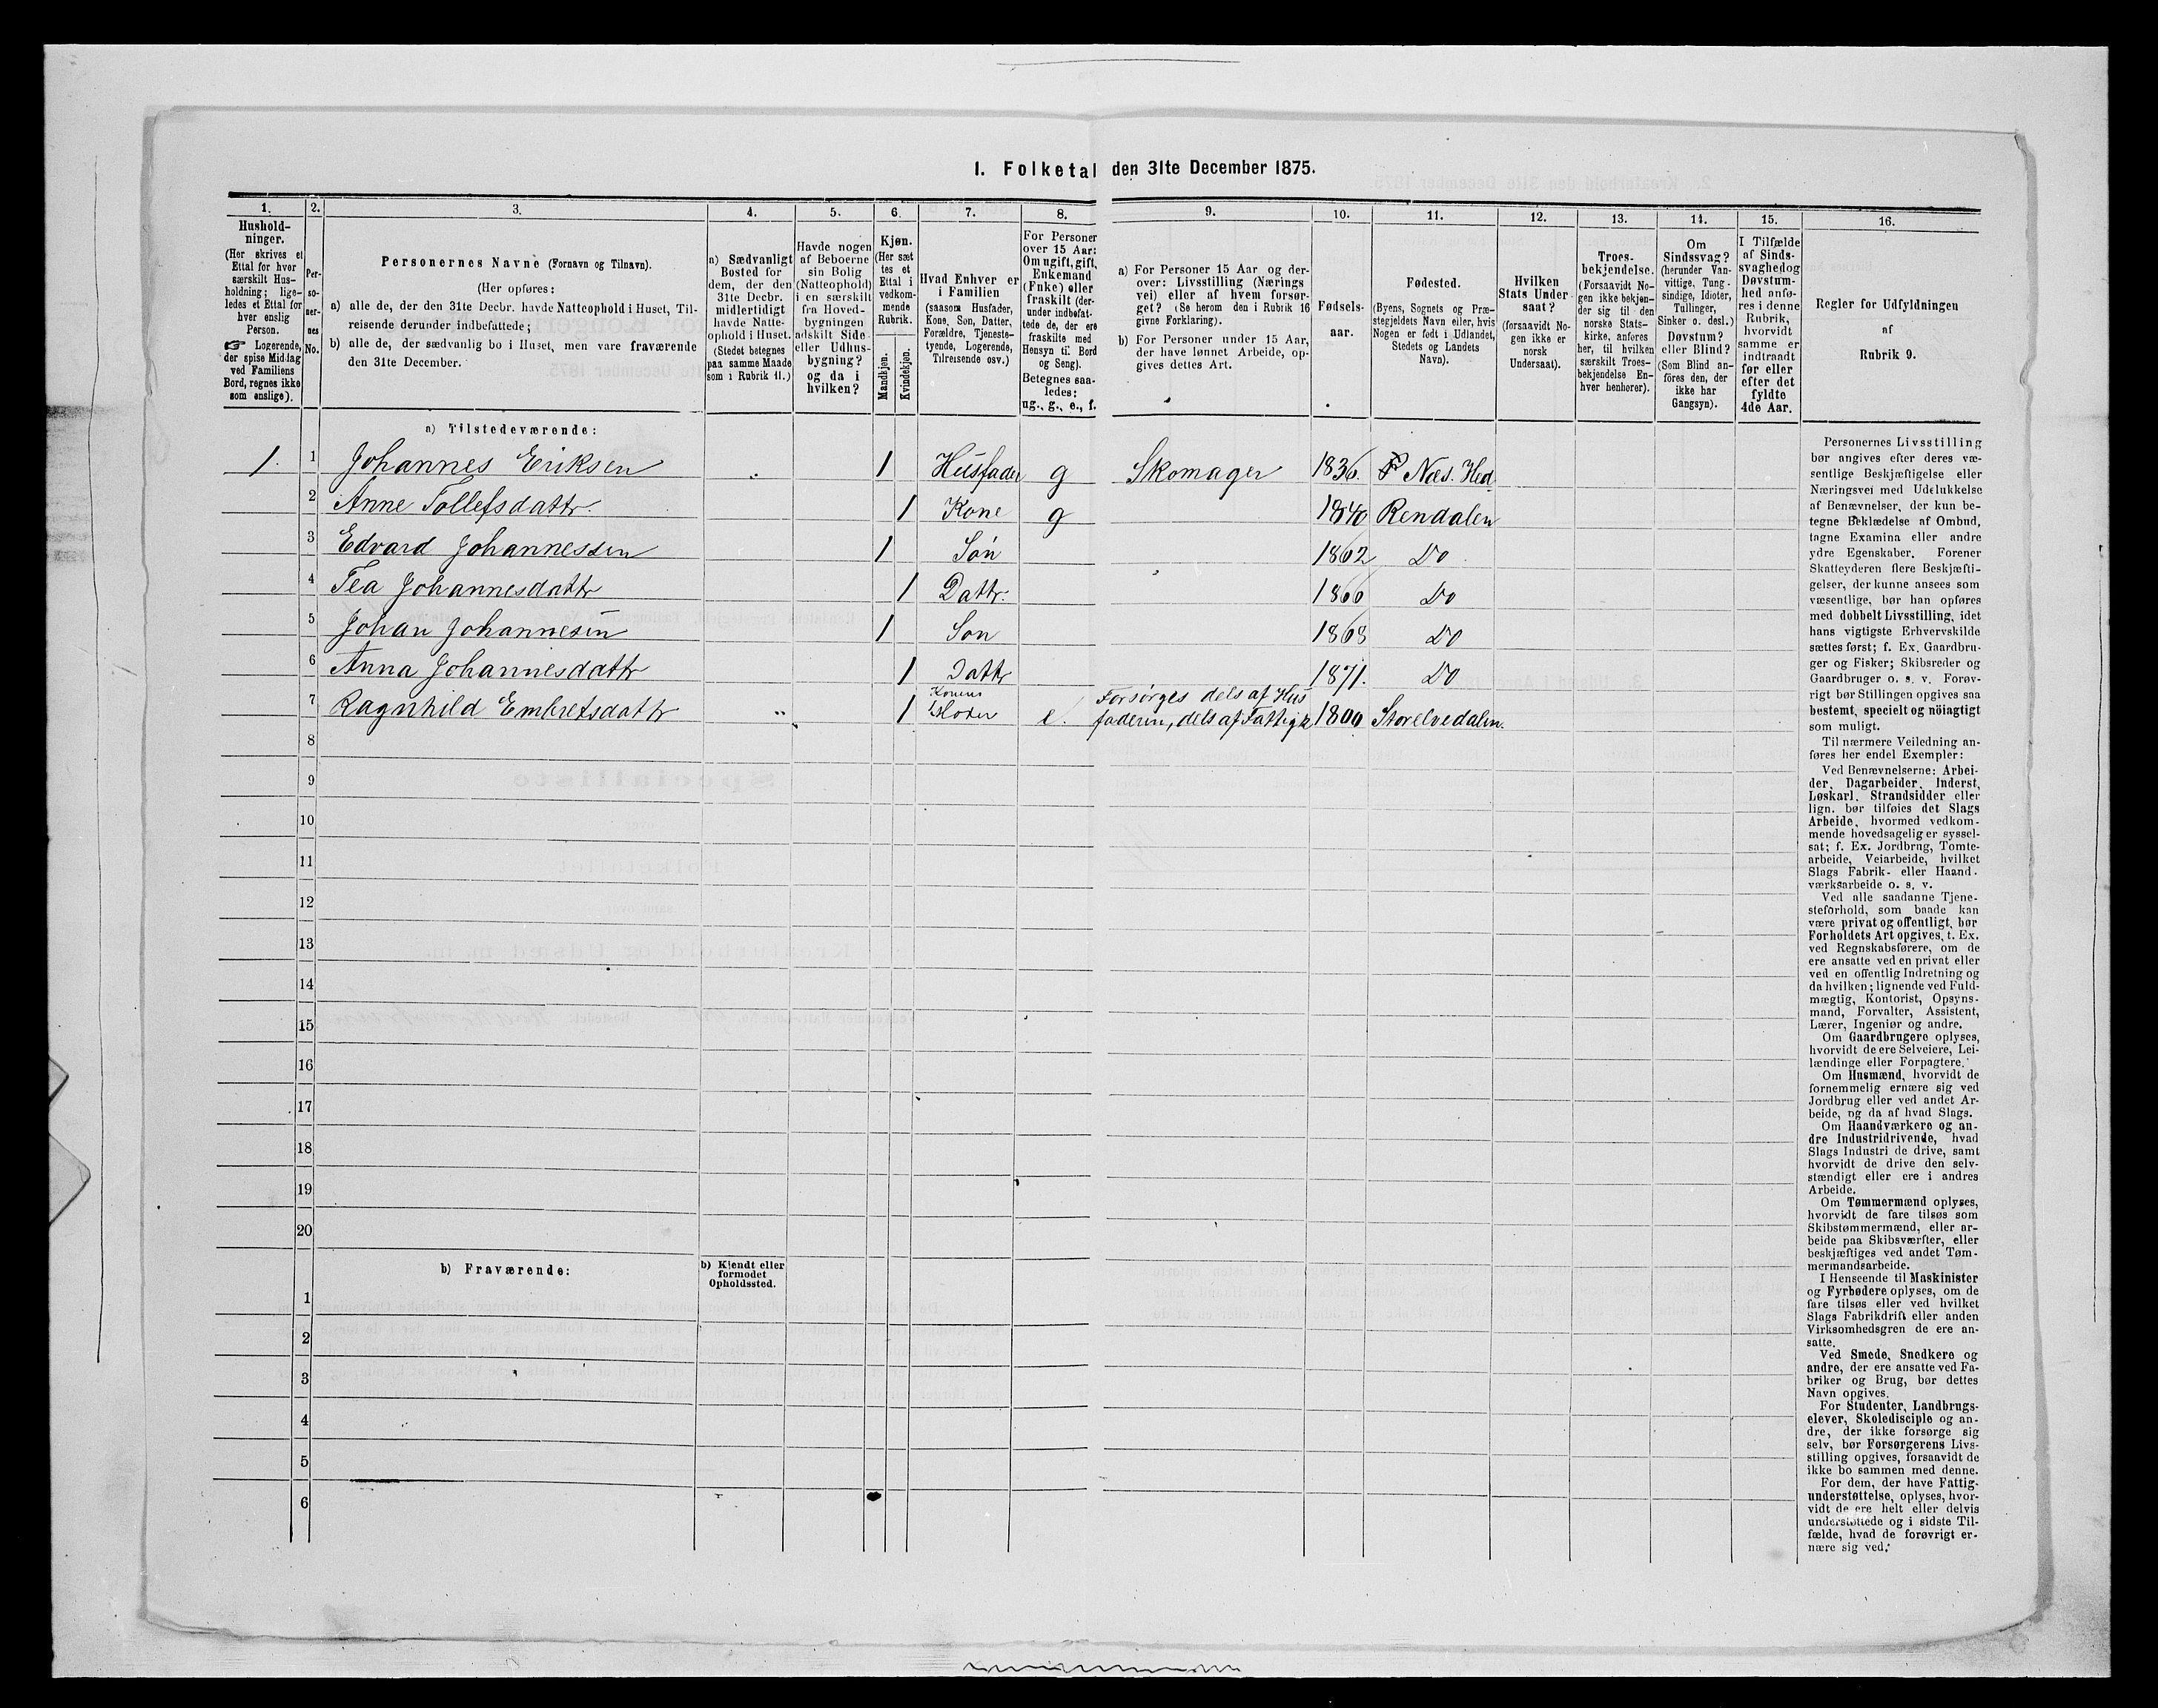 1. Folketal den 31te December 1875.
1. 2. 3. 4. 5. 6. 7. 8. 9. 10. 11. 12. 13. 14. 15. 16.
Hushold-
ninger.
(Her skrives et
Ettal for hver
særskilt Hus-
holdning; lige-
ledes et Ettal for
hver enslig
Person.
☞ Logerende,
der spise Middag
ved Familiens
Bord, regnes ikke
som enslige).
Per-
so-
ner-
nes
No.
Personernes Navne (Fornavn og Tilnavn).
(Her opføres:
a) alle de, der den 31te Decbr. havde Natteophold i Huset, Til-
reisende derunder indbefattede;
b) alle de, der sædvanlig bo i Huset, men vare fraværende
den 31te December.
a) Sædvanligt
Bosted for
dem, der den
31te Decbr.
midlertidigt
havde Natte-
ophold i Huset.
(Stedet betegnes
paa samme Maade
som i Rubrik 11.)
Havde nogen
af Beboerne
sin Bolig
(Natteophold)
i en særskilt
fra Hoved-
bygningen
adskilt Side
eller Udhus-
bygning?
og da i
hvilken?
Kjøn.
(Her sæt
tes et
Ettal i
vedkom-
mende
Rubrik.
Mandkjøn.
Kvindekjøn.
Hvad Enhver er
i Familien
(saasom Husfader,
Kone, Søn, Datter,
Forældre, Tjeneste-
tyende, Logerende,
Tilreisende osv.)
For Personer
over 15 Aar:
Om ugift, gift,
Enkemand
(Enke) eller
fraskilt (der-
under indbefat-
tede de, der ere
fraskilte med
Hensyn til Bord
og Seng).
Betegnes saa-
ledes:
ug., g., e., f.
a) For Personer 15 Aar og der-
over: Livsstilling (Nærings
vei) eller af hvem forsør-
get? (Se herom den i Rubrik 16
givne Forklaring).
b) For Personer under 15 Aar,
der have lønnet Arbeide, op-
gives dettes Art.
Fødsels-
aar.
Fødested.
(Byens, Sognets og Præ-
stegjeldets Navn eller, hvis
Nogen er født i Udlandet,
Stedets og Landets
Navn).
Hvilken
Stats Under-
saat?
(forsaavidt No-
gen ikke er
norsk
Undersaat).
Troes-
bekjendelse.
(Forsaavidt No-
gen ikke bekjen-
der sig til den
norske Stats-
kirke, anføres
her, til hvilken
særskilt Troes-
bekjendelse En-
hver henhører).
Om
Sindssvag?
(herunder Van-
vittige, Tung-
sindige, Idioter,
Tullinger,
Sinker o. desl.)
Døvstum?
eller Blind?
(Som Blind an-
föres den, der
ikke har
Gangsyn).
I Tilfælde
af Sinds-
svaghed og
Døvstum-
hed anfø-
res i denne
Rubrik,
hvorvidt
samme er
indtraadt
før eller
efter det
fyldte
4de Aar.
Regler for Udfyldningen
af
Rubrik 9.
a) Tilstedeværende:
1. 1 Johannes Eriksen 1 Husfader g Skomager 1836. Næs. Hed.
2 Anne Tollefsdattr. 1 Kone g 1840 Rendalen
3 Edvard Johannessen 1 Søn 1862 Do
4 Tea Johannesdattr 1 Dattr. 1866 Do
5 Johan Johannesen 1 Søn 1868 Do
6 Anna Johannesdattr 1 Dattr 1871. Do
7 Ragnhild Embretsdattr " 1 Konens Moder e. Forsørges dels af Hus
faderen, dels af Fattigk 1800 Storelvedalen.
8
9
10
11
12
13
14
15
16
17
18
19
20
b) Fraværende:
b) Kjendt eller
formodet
Opholdssted.
1
2
3
4
5
6
Personernes Livsstilling
bør angives efter deres væ-
sentlige Beskjæftigelse eller
Næringsvei med Udelukkelse
af Benævnelser, der kun be-
tegne Beklædelse af Ombud,
tagne Examina eller andre
ydre Egenskaber. Forener
Skatteyderen flere Beskjæfti-
gelser, der kunne ansees som
væsentlige, bør han opføres
med dobbelt Livsstilling, idet
hans vigtigste Erhvervskilde
sættes først; f. Ex. Gaardbru-
ger og Fisker; Skibsreder og
Gaardbruger o. s. v. Forøv-
rigt bør Stillingen opgives saa
bestemt, specielt og nöiagtigt
som muligt.
Til nærmere Veiledning an-
føres her endel Exempler:
Ved Benævnelserne: Arbei-
der, Dagarbeider, Inderst,
Løskarl, Strandsidder eller
lign. bør tilføies det Slags
Arbeide, hvormed vedkom-
mende hovedsagelig er syssel-
sat; f. Ex. Jordbrug, Tomte-
arbeide, Veiarbeide, hvilket
Slags Fabrik- eller Haand-
værksarbeide o. s. v.
Ved alle saadanne Tjene-
steforhold, som baade kan
være privat og offentligt, bør
Forholdets Art opgives, t. Ex.
ved Regnskabsførere, om de
ere ansatte ved en privat eller
ved en offentlig Indretning og
da hvilken; lignende ved Fuld-
mægtig, Kontorist, Opsyns-
mand, Forvalter, Assistent,
Lærer, Ingeniør og andre.
Om Gaardbrugere oplyses,
hvorvidt de ere Selveiere, Lei-
lændinge eller Forpagtere.
Om Husmænd, hvorvidt de
fornemmelig ernære sig ved
Jordbrug eller ved andet Ar-
beide, og da af hvad Slags.
Om Haandværkere og an-
dre Industridrivende, hvad
Slags Industri de drive, samt
hvorvidt de drive den selv-
stændigt eller ere i andres
Arbeide.
Om Tømmermænd oplyses,
hvorvidt de fare tilsøs som
Skibstømmermænd, eller ar-
beide paa Skibsværfter, eller
beskjæftiges ved andet Tøm-
mermandsarbeide.
I Henseende til Maskinister
og Fyrbødere oplyses, om de
fare tilsøs eller ved hvilket
Slags Fabrikdrift eller anden
Virksomhedsgren de ere an-
satte.
Ved Smede, Snedkere og
andre, der ere ansatte ved Fa-
briker og Brug, bør dettes
Navn opgives.
For Studenter, Landbrugs-
elever, Skoledisciple og an-
dre, der ikke forsørge sig
selv, bør Forsørgerens Livs-
stilling opgives, forsaavidt de
ikke bo sammen med denne.
For dem, der have Fattig-
understøttelse, oplyses, hvor-
vidt de ere helt eller delvis
understøttede og i sidste Til-
fælde, hvad de forøvrigt er-
nære sig ved.